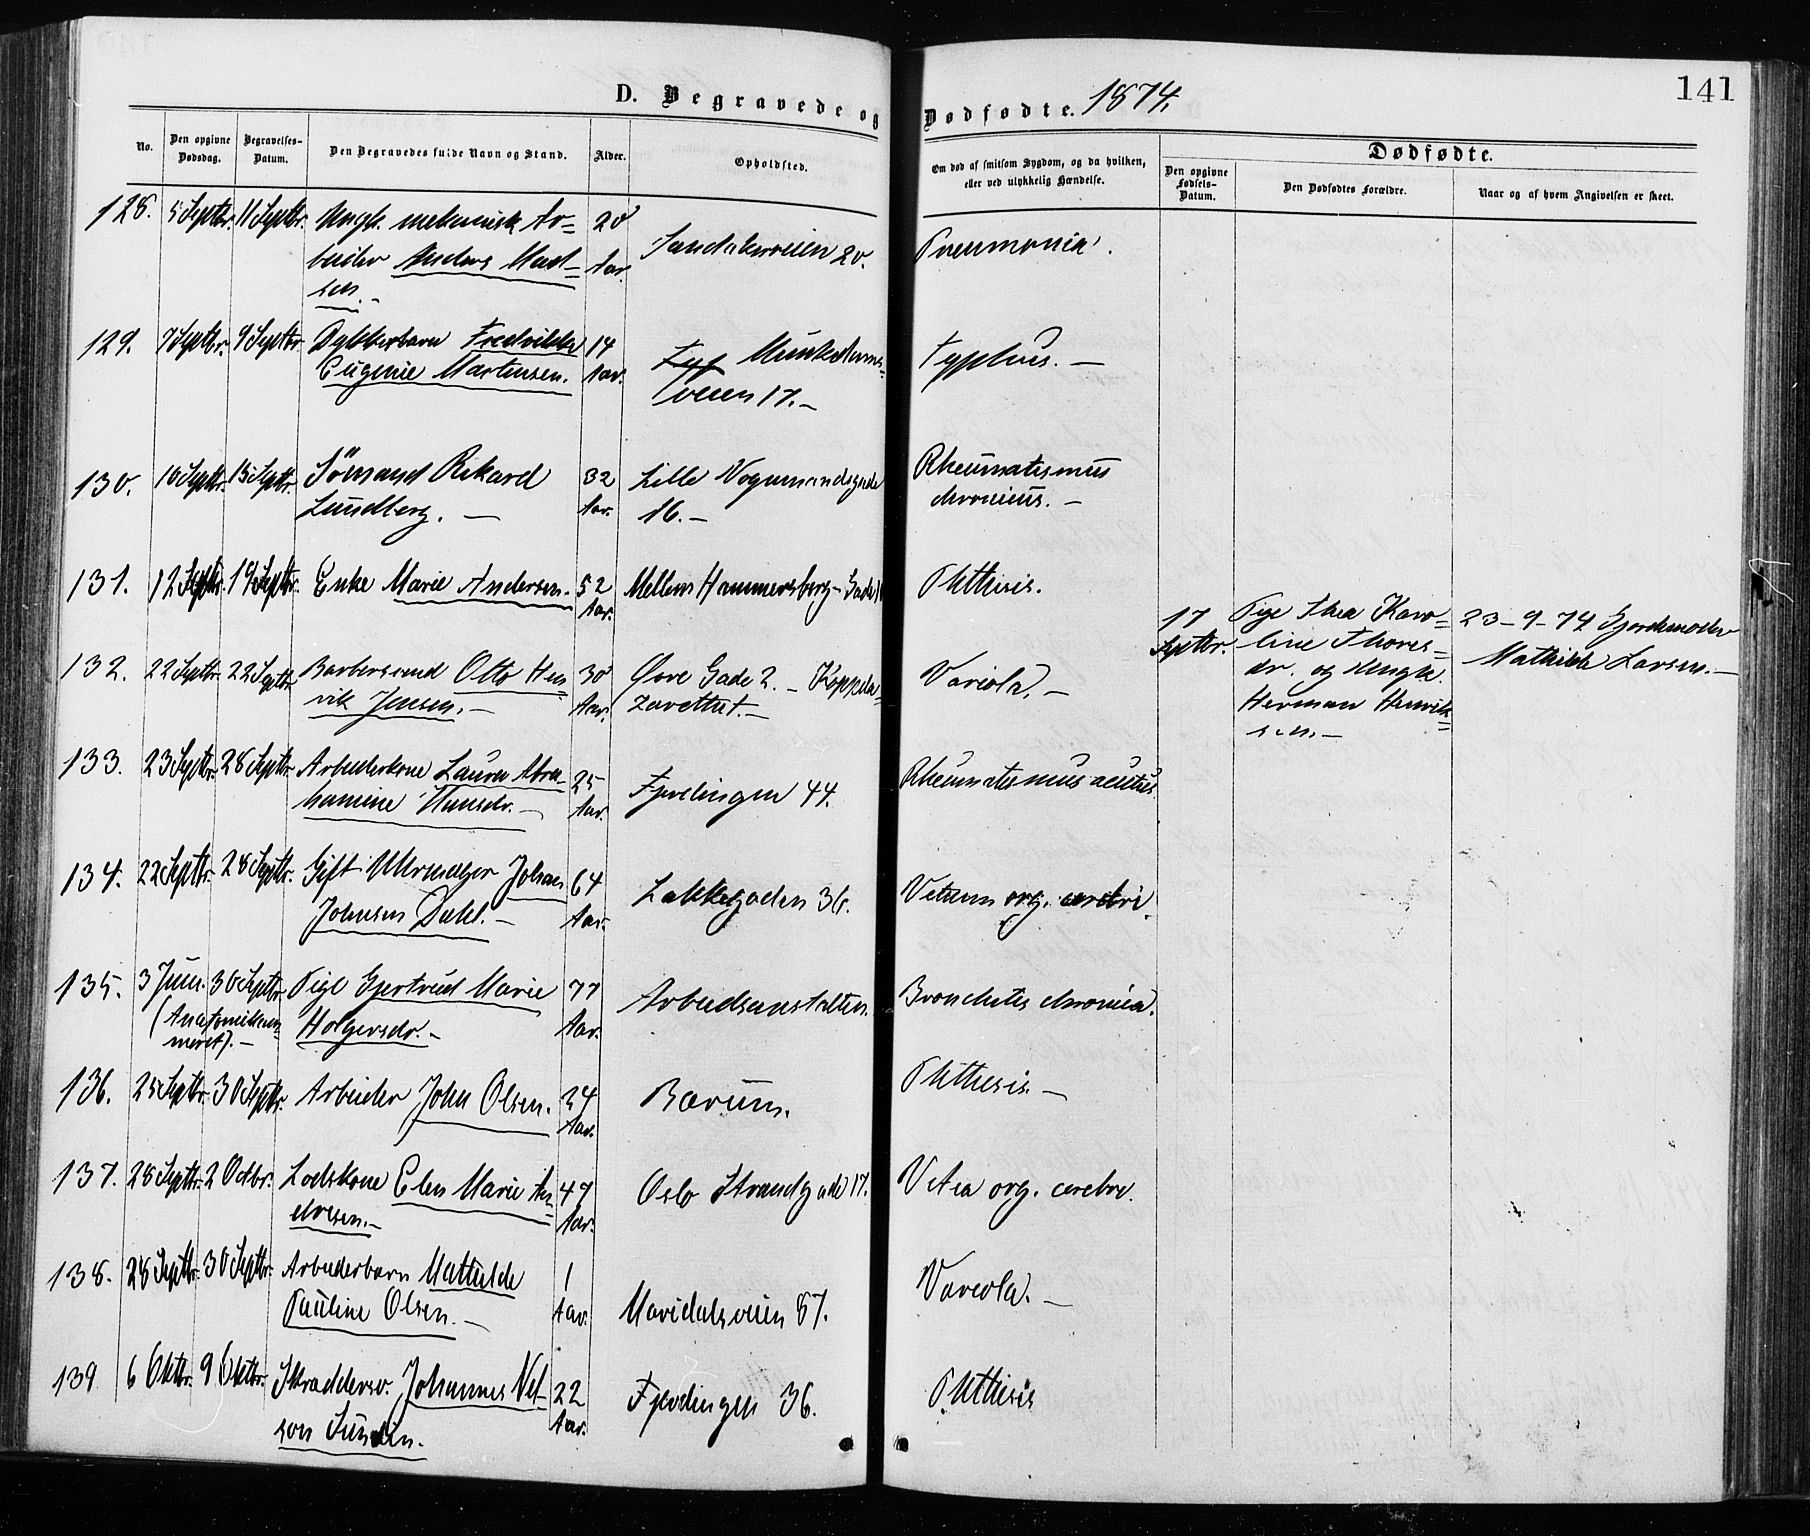 141
D. Begravede og Dødfødte. 1874.
No.
Den opgivne Dødsdag.
Begravelses-Datum.
Den Begravedes fulde Navn og Stand.
Alder.
Opholdsted.
Om død af smitsom Sygdom, og da hvilken, eller ved ulykkelig Hændelse.
Dødfødte.
Den opgivne Fødsels-Datum.
Den Dødfødtes Forældre.
Naar og af hvem Angivelsen er skeet.
128. 5 Septbr. 11 Septbr. Ungk. mekanisk Ar= 28 Sandakerveien 20. Pneumonia.
beider Anders Mad= Aar.
sen.
129. 7 Septbr. 9 Septbr. Dykkerbarn Fredrikke 14 Munkedams= Typhus. —
Eugenie Martinsen. Aar. veien 17. —
130. 10 Septbr. 15 Septbr. Sömand Rikard 32 Lille Vognmandsgade Rheumatismus
Lundberg. — Aar. 16. — chronicus. —
131. 12 Septbr. 19 Septbr. Enke Marie Andersen. 52 Mellem Hammersborg-Gade Phthisis.
Aar.
17 Pige Thea Karo= 23-9-74 Gjordemoder
Septbr. line Thores= Mathilde Larsen. —
dr. og Ungk.
Herman Henrik=
sen. —
132. 22 Septbr. 22 Septbr. Barbersvend Otto Hen 30 Øvre Gade 2. — Koppela= Variola. —
rik Jensen. — Aar. zarettet. —
133. 23 Septbr. 28 Septbr. Arbeiderkone Laura Abra= 25 Fjerdingen 44. Rheumatismus acutus.
hamine Hansdr. — Aar.
134. 22 Septbr. 28 Septbr. Gift Uhrmager Johan 64 Lakkegaden 36. Vitium org. cerebri.
Johnsen Dahl. — Aar.
135. 3 Juni. 30 Septbr. Pige Gjertrud Marie 77 Arbeidsanstalten. Bronchitis chronica.
(Anatomikam= Holgersdr. — Aar.
meret). —
136. 25 Septbr. 30 Septbr. Arbeider John Olsen. 34 Bærum. Phthisis. —
Aar.
137. 28 Septbr. 2 Octbr. Lodskone Elen Marie An= 47 Oslo Strandgade 17. Vitia org. cerebr.
dresen. — Aar.
138. 28 Septbr. 30 Septbr. Arbeiderbarn Mathilde 1 Maridalsveien 87. Variola. —
Pauline Olsen. — Aar.
139 6 Oktbr. 9 Oktbr. Skraddersv. Johannes Nel= 22 Fjerdingen 36. Phthisis
son Sundin. Aar.